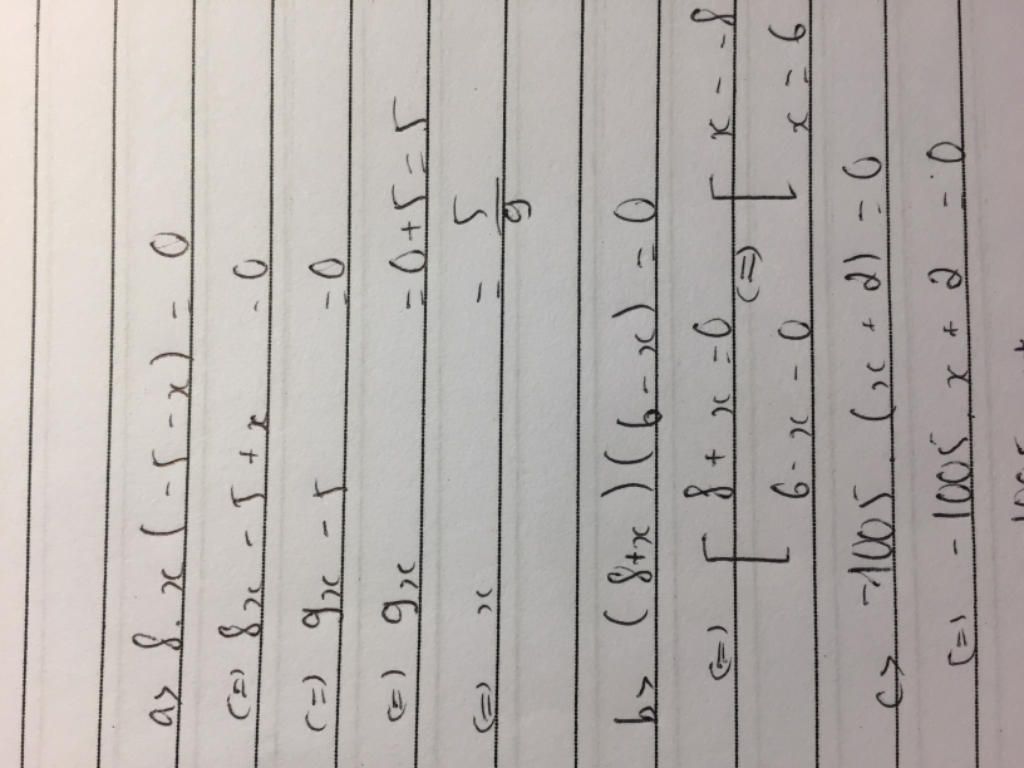 a> 8.x(-5-x) = 0
(=) 8x - 5 + x = 0
(=) 9x - 5 = 0
(=) 9x = 0 + 5 = 5
(=) x = 5/9
b> (8+x)(6-x) = 0
(=) [ 8 + x = 0 (=) [ x = -8
6 - x = 0 x = 6
c> -1005.(x + 2) = 0
(=) -1005.x + 2 = 0